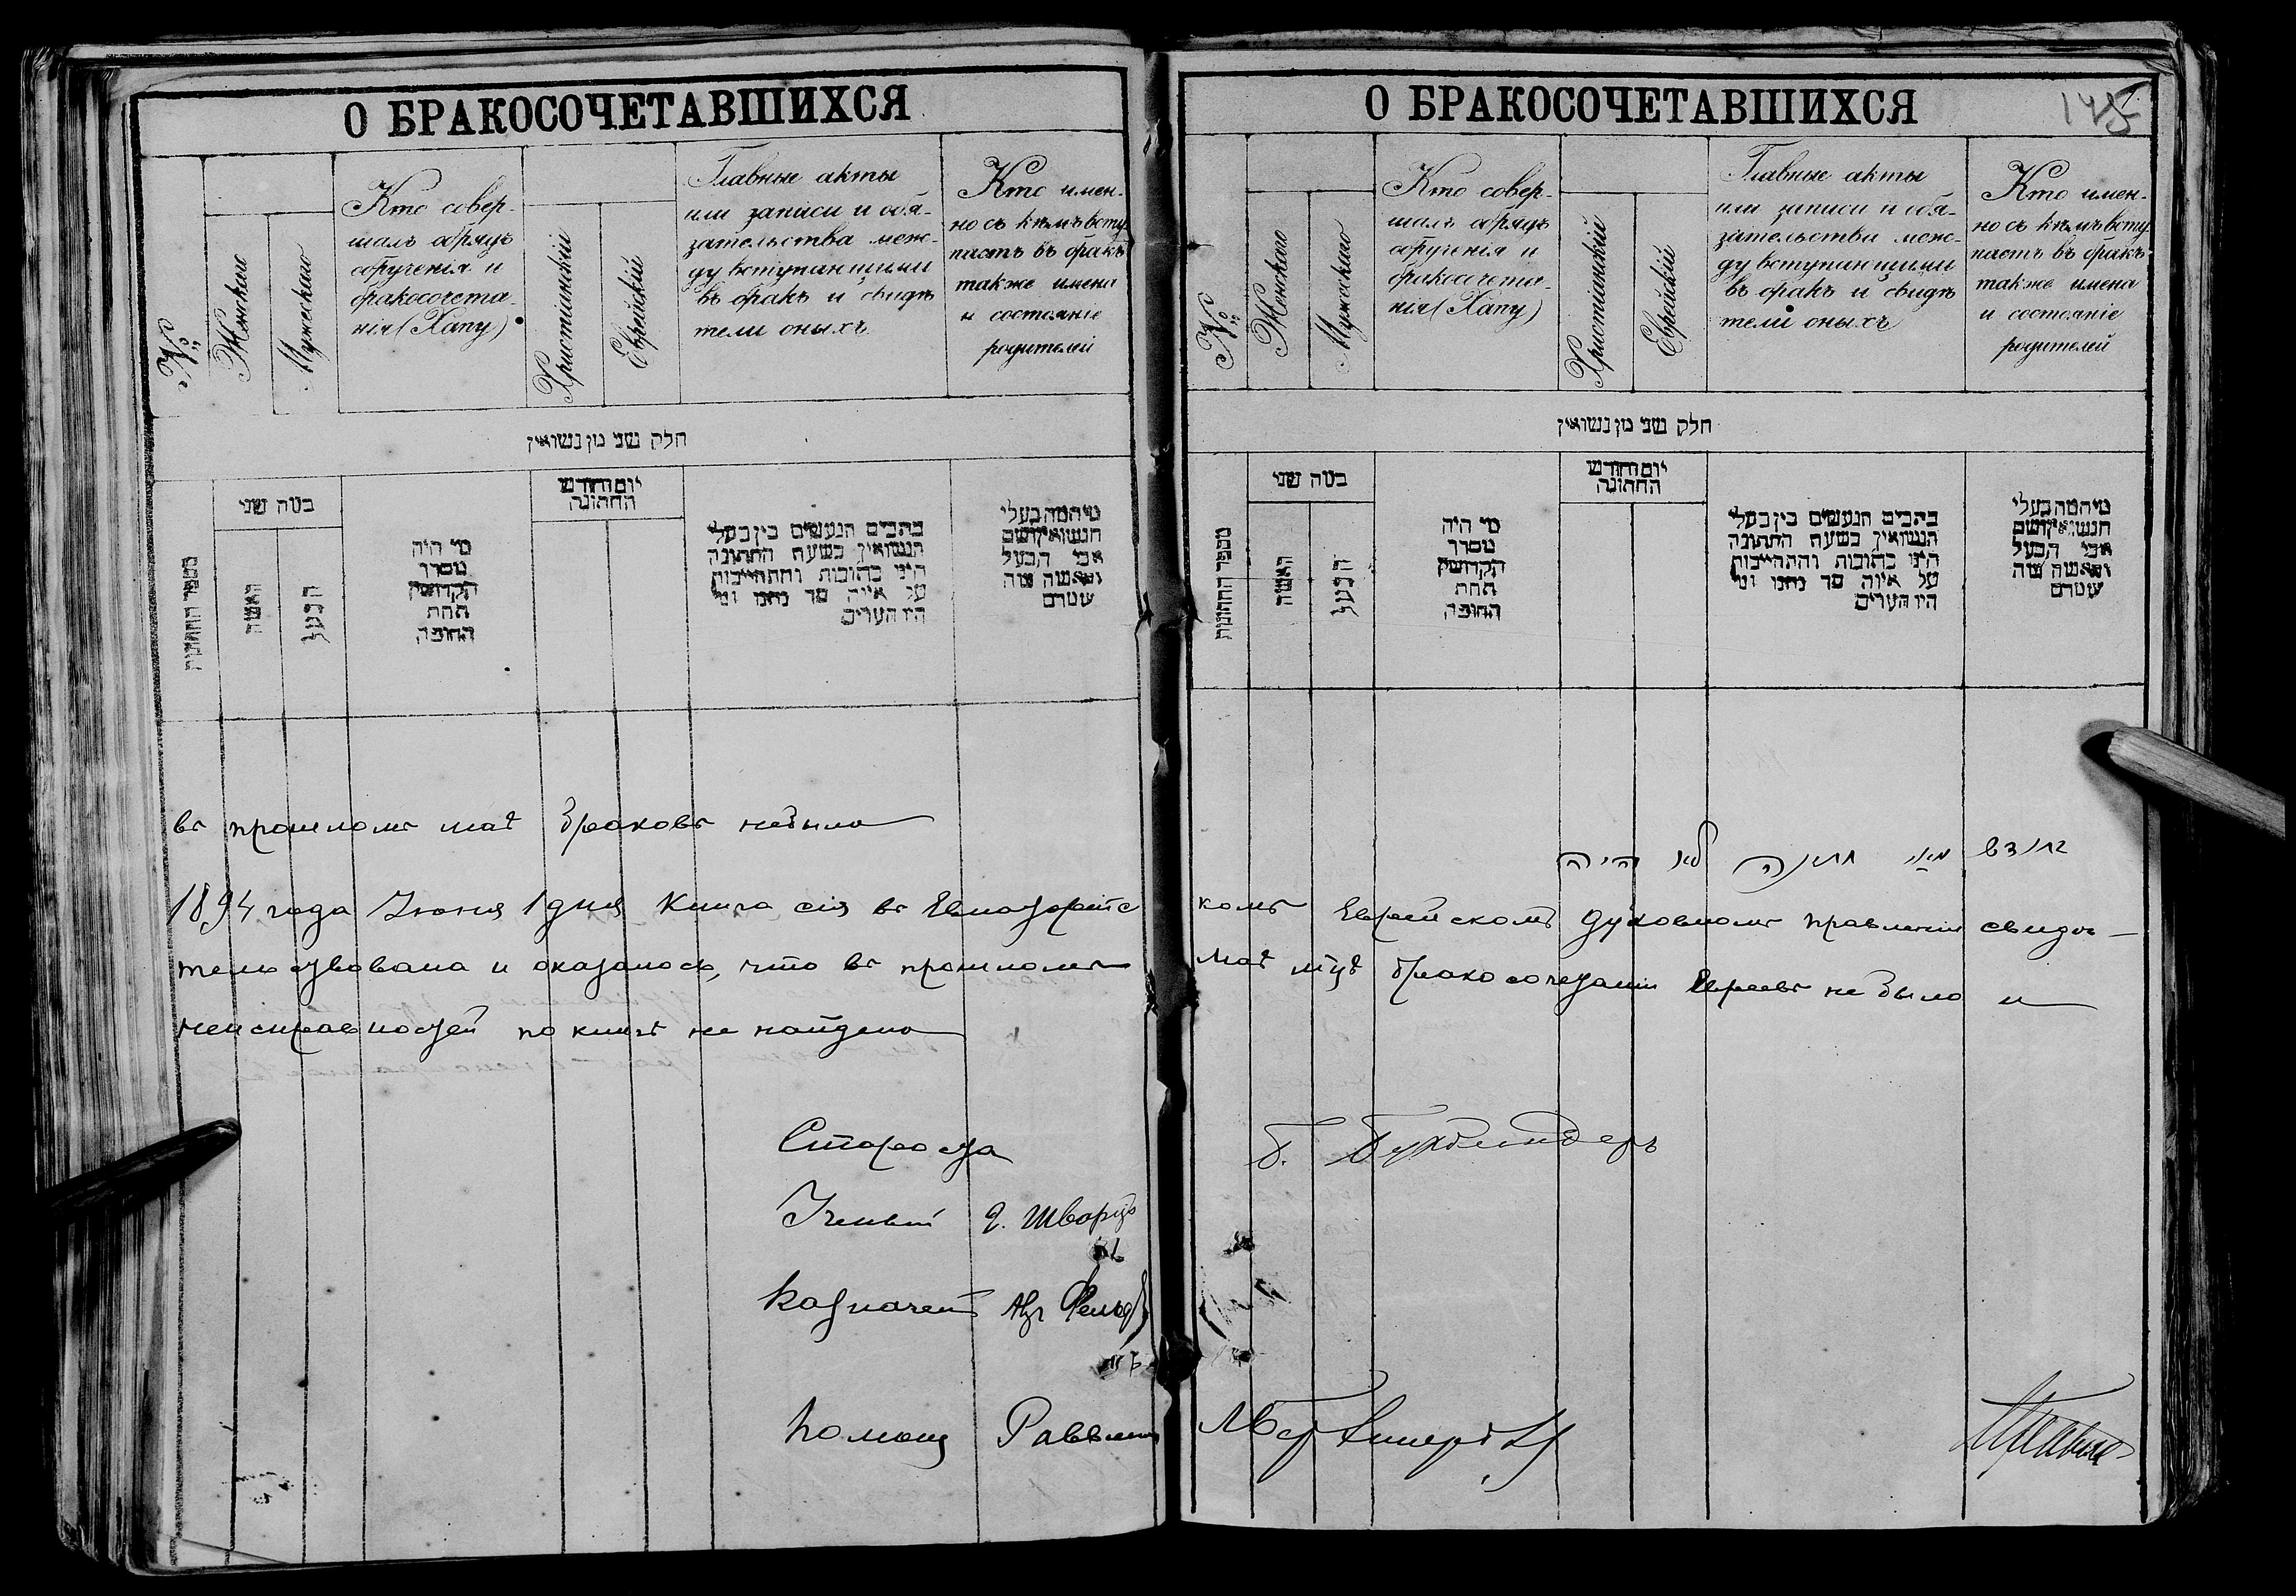 О БРАКОСОЧЕТАВШИХСЯ
№
Женскаго
Мужескаго
Кто совер-
шалъ обрядъ
обрученія и
бракосочета-
нія (Хапу)
Христіанскій
Еврейскій
Главные акты
или записи и обя-
зательства меж-
ду вступающими
въ бракъ и свидѣ
тели оныхъ
Кто имен-
но съ кѣмъ всту
паетъ въ бракъ
также имена
и состояніе
родителей
חלק שני מן נשואין
מספר החתונות
כמה שני
האשה
הבעל
מי היה
מסדר
הקדושין
תחת
החופה
יום וחודש
החתונה
כתבים הנעשים בין בעלי
הנשואין בשעת החתונה
היינו כתובות והתחייבות
על איזה סך נתנו ומי
היו העדים
מי המה בעלי
הנשואין ושם
אבי הבעל
והאשה מה
שמדם
въ прошломъ маѣ браковъ небыло
1894 года Іюня 1 дня Книга сія въ Евпаторійс
тельствована и оказалось, что въ прошломъ
неисправностей по книгѣ не найдено
Староста
Ученый
Шварцъ
Казначей
Помощ Раввина
О БРАКОСОЧЕТАВШИХСЯ
145
№
Женскаго
Мужескаго
Кто совер-
шалъ обрядъ
обрученія и
бракосочета-
нія (Хапу)
Христіанскій
Еврейскій
Главные акты
или записи и обя-
зательства меж-
ду вступающими
въ бракъ и свидѣ
тели оныхъ
Кто имен-
но съ кѣмъ всту
паетъ въ бракъ
также имена
и состояніе
родителей
חלק שני מן נשואין
מספר החתונות
כמה שני
האשה
הבעל
מי היה
מסדר
הקדושין
תחת
החופה
יום וחודש
החתונה
כתבים הנעשים בין בעלי
הנשואין בשעת החתונה
היינו כתובות והתחייבות
על איזה סך נתנו ומי
היו העדים
מי המה בעלי
הנשואין ושם
אבי הבעל
והאשה מה
שמדם
בחדש מאי חתונה לא היה
комъ Еврейскомъ Духовномъ правленіи свидѣ-
маѣ мцѣ бракосочетаніи Евреевъ не было и